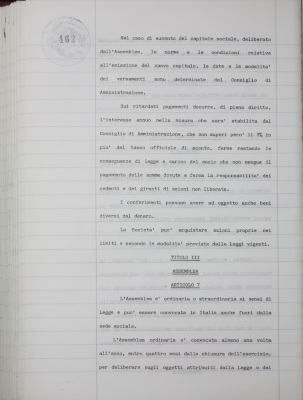 463
Nel caso di aumento del capitale sociale, deliberato
dall'Assemblea, le norme e le condizioni relative
all'emissione del nuovo capitale, le date e le modalita'
dei versamenti sono determinate dal Consiglio di
Amministrazione.
Sui ritardati pagamenti decorre, di pieno diritto,
l'interesse annuo nella misura che sara' stabilita dal
Consiglio di Amministrazione, che non superi pero' il 3% in
piu' del tasso ufficiale di sconto, ferme restando le
conseguenze di legge a carico del socio che non esegue il
pagamento delle somme dovute e ferma la responsabilita' dei
cedenti e dei giranti di azioni non liberate.
I conferimenti possono avere ad oggetto anche beni
diversi dal denaro.
La Societa' puo' acquistare azioni proprie nei
limiti e secondo le modalita' previste dalle Leggi vigenti.
TITOLO III
ASSEMBLEA
ARTICOLO 7
L'Assemblea e' ordinaria o straordinaria ai sensi di
Legge e puo' essere convocata in Italia anche fuori dalla
sede sociale.
L'Assemblea ordinaria e' convocata almeno una volta
all'anno, entro quattro mesi dalla chiusura dell'esercizio,
per deliberare sugli oggetti attribuiti dalla Legge o dal